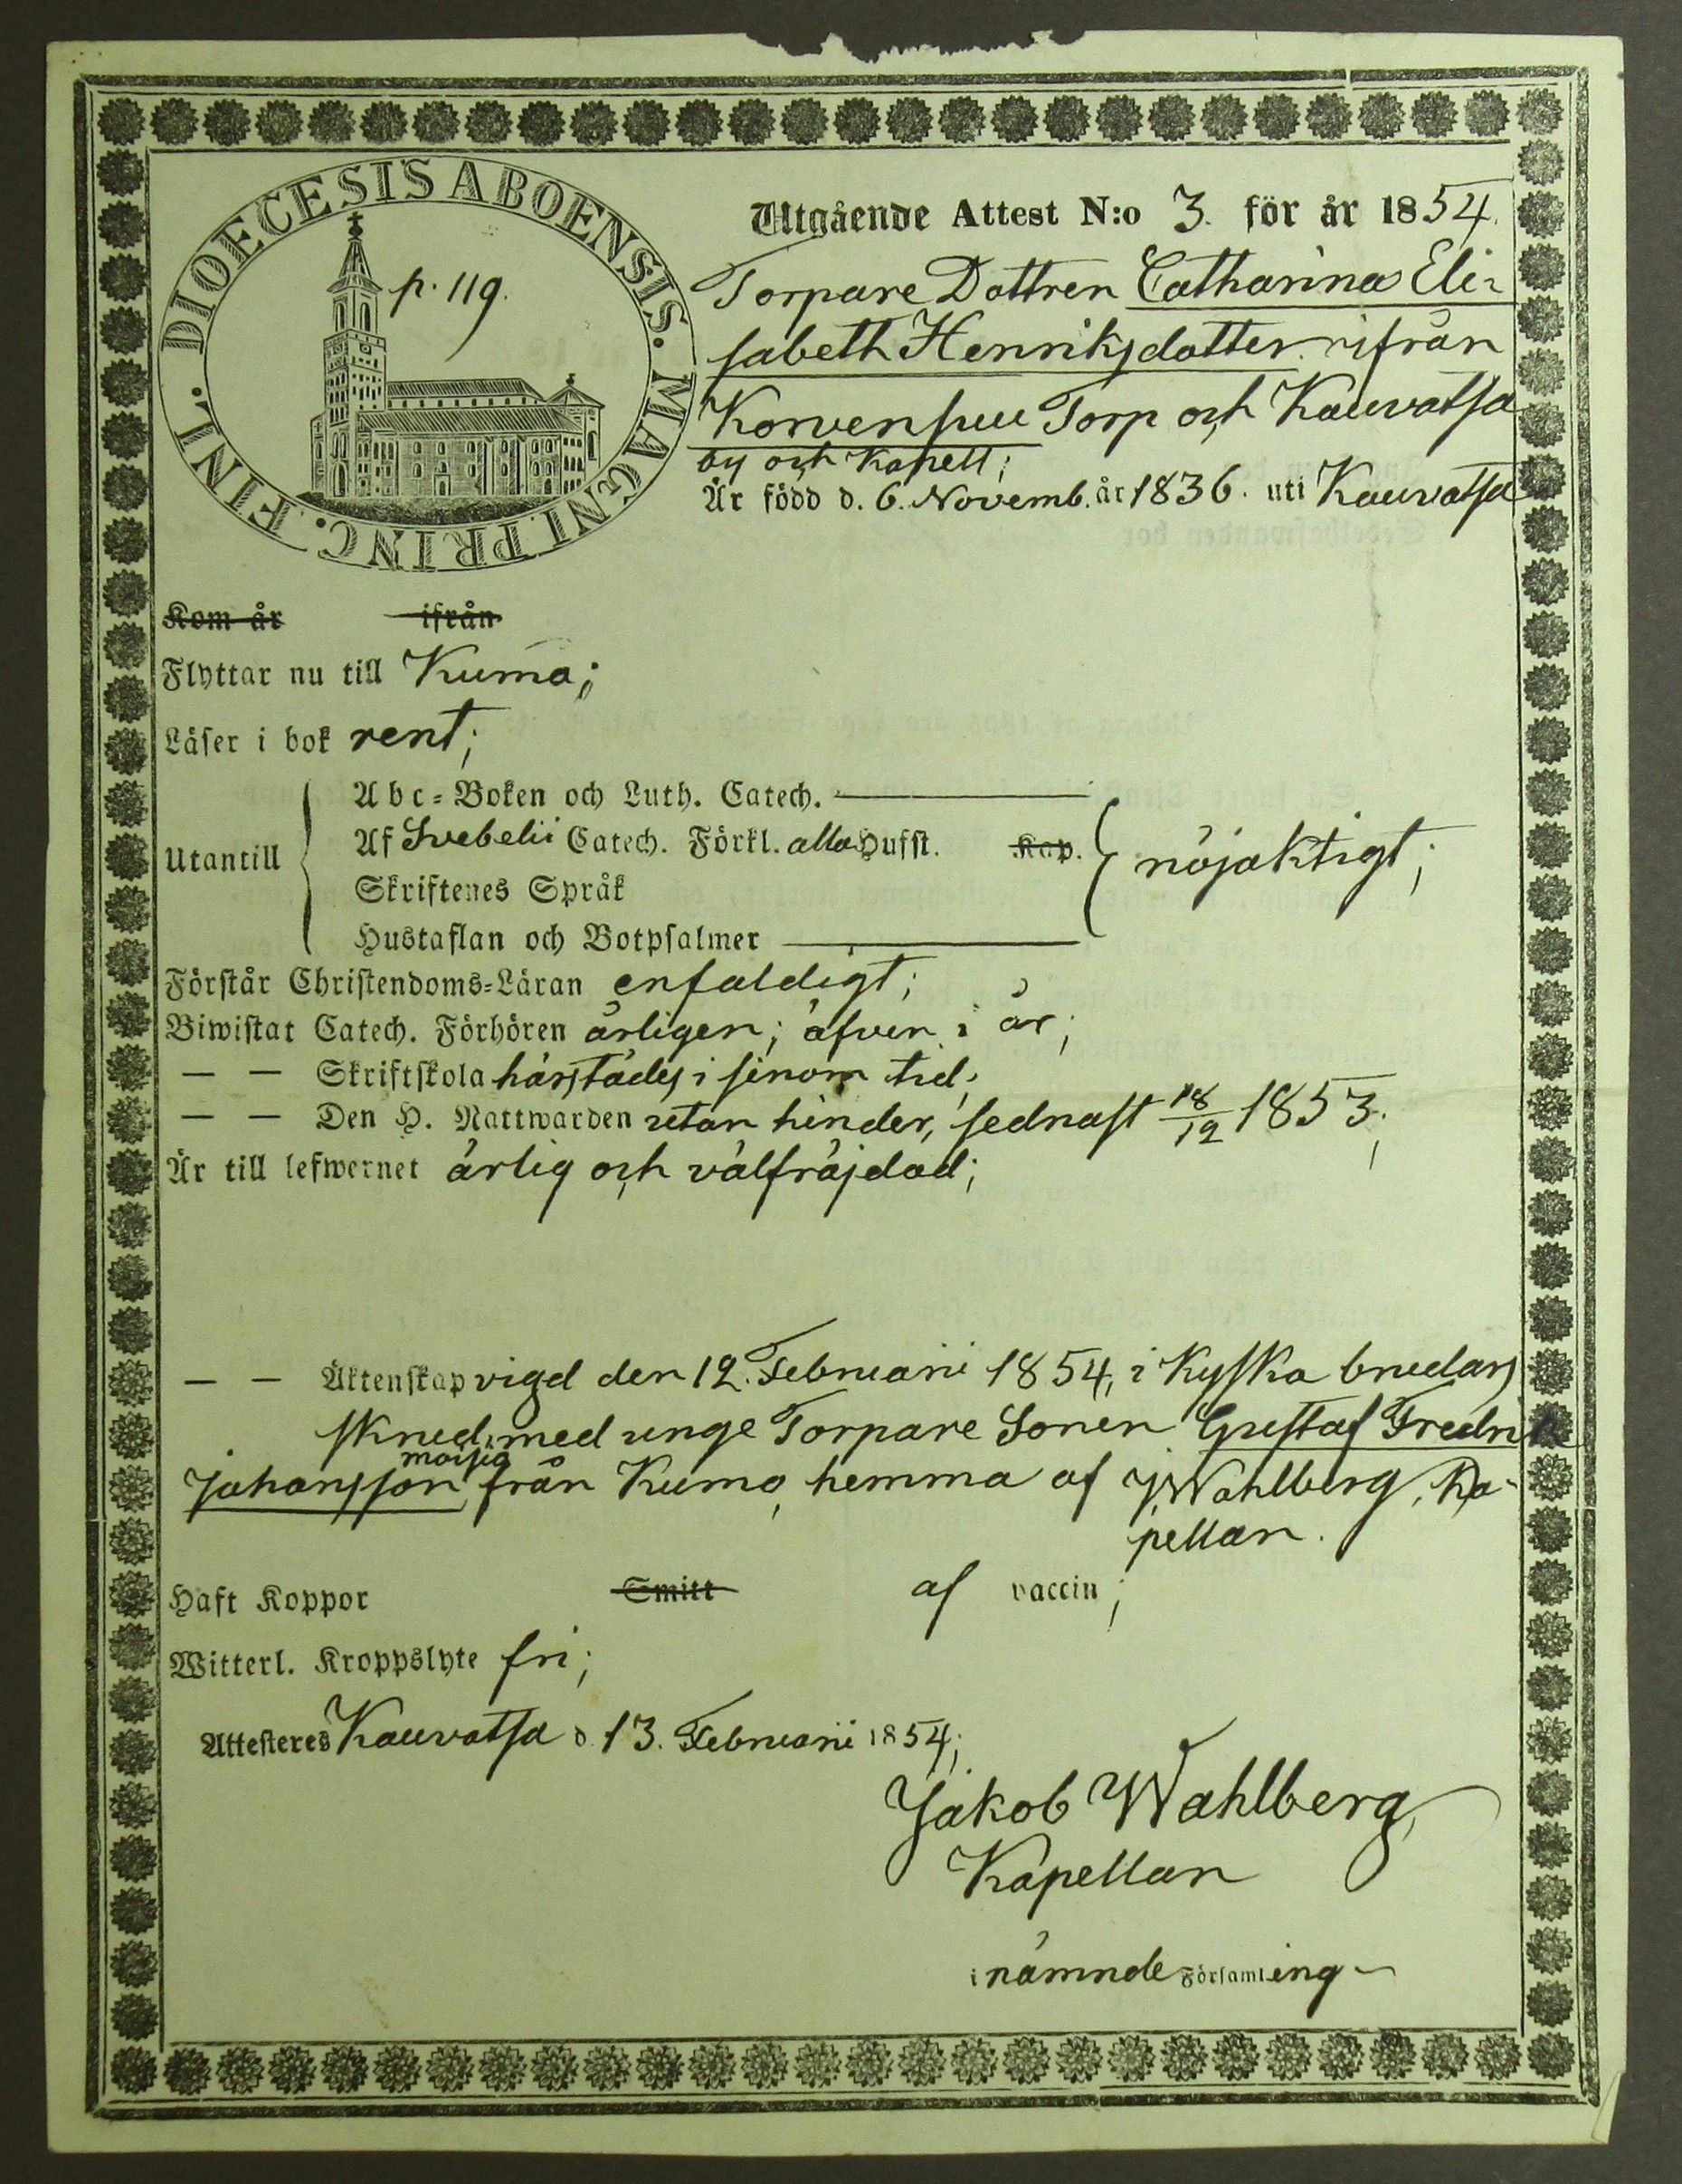 DIOECESIS ABOENSIS. MAGNI PRINC. FINL.
p. 119.
Utgående Attest N:o 3. för år 1854.
Torpare Dottren Catharina Eli-
sabeth Henriksdotter ifrån
Korvensuu Torp och Kauvatsa
by och Kapell;
Är född d. 6. Novemb. år 1836. uti Kauvatsa
Kom år ifrån
Flyttar nu till Kumo;
Läser i bok rent;
Utantill
Abc-Boken och Luth. Catech.
Af Svebelii Catech. Förkl. alla Hufst. Kap.
Skriftenes Språk
Hustaflan och Botpsalmer
nöjaktigt;
Förstår Christendoms-Läran enfaldigt;
Biwistat Catech. Förhören årligen; äfven i år;
— — Skriftskola härstädes i sinom tid;
— — Den H. Nattwarden utan hinder, sednast 18/12 1853;
Är till lefwernet ärlig och välfräjdad;
— — Äktenskap vigd den 12. Februarii 1854, i Kyska brudars
skrud, med unge Torpare Sonen Gustaf Fredrik
Johansson, från Kumo, hemma af J. Wahlberg, Ka-
pellan.
Haft Koppor Smitt af vaccin;
Witterl. Kroppslyte fri;
Attesteres Kauvatsa d. 13. Februarii 1854;
Jakob Wahlberg,
Kapellan
i nämnde Församling